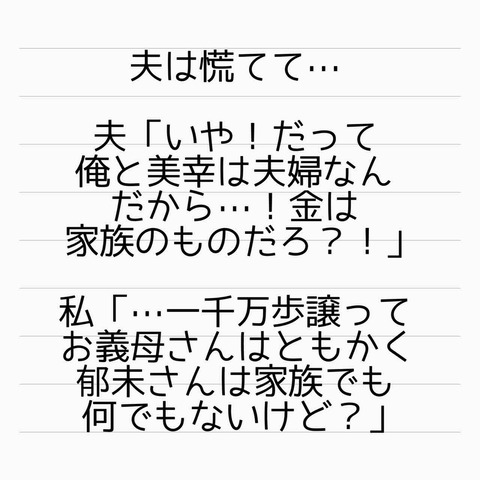 夫は慌てて…
夫「いや！だって
俺と美幸は夫婦なん
だから…！金は
家族のものだろ？！」
私「…一千万歩譲って
お義母さんはともかく
郁未さんは家族でも
何でもないけど？」